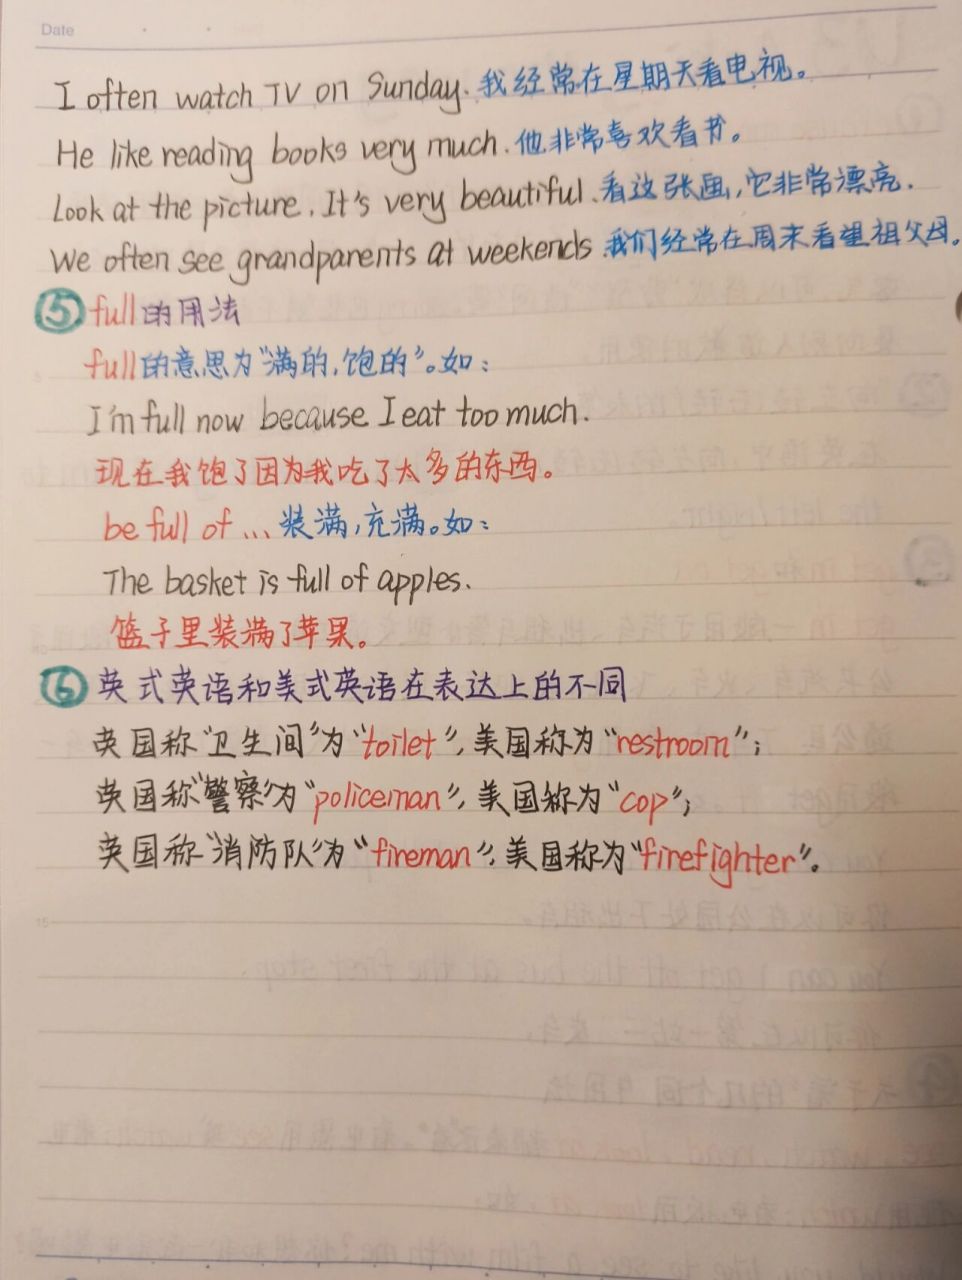 Date
I often watch TV on Sunday. 我经常在星期天看电视。
He like reading books very much. 他非常喜欢看书。
Look at the picture. It's very beautiful. 看这张画，它非常漂亮.
We often see grandparents at weekends 我们经常在周末看望祖父母。
⑤ full的用法
full的意思为“满的，饱的”。如：
I'm full now because I eat too much.
现在我饱了因为我吃了太多的东西。
be full of ... 装满，充满。如：
The basket is full of apples.
篮子里装满了苹果。
⑥ 英式英语和美式英语在表达上的不同
英国称“卫生间”为“toilet”，美国称为“restroom”；
英国称“警察”为“policeman”，美国称为“cop”；
英国称“消防队”为“fireman”，美国称为“firefighter”。